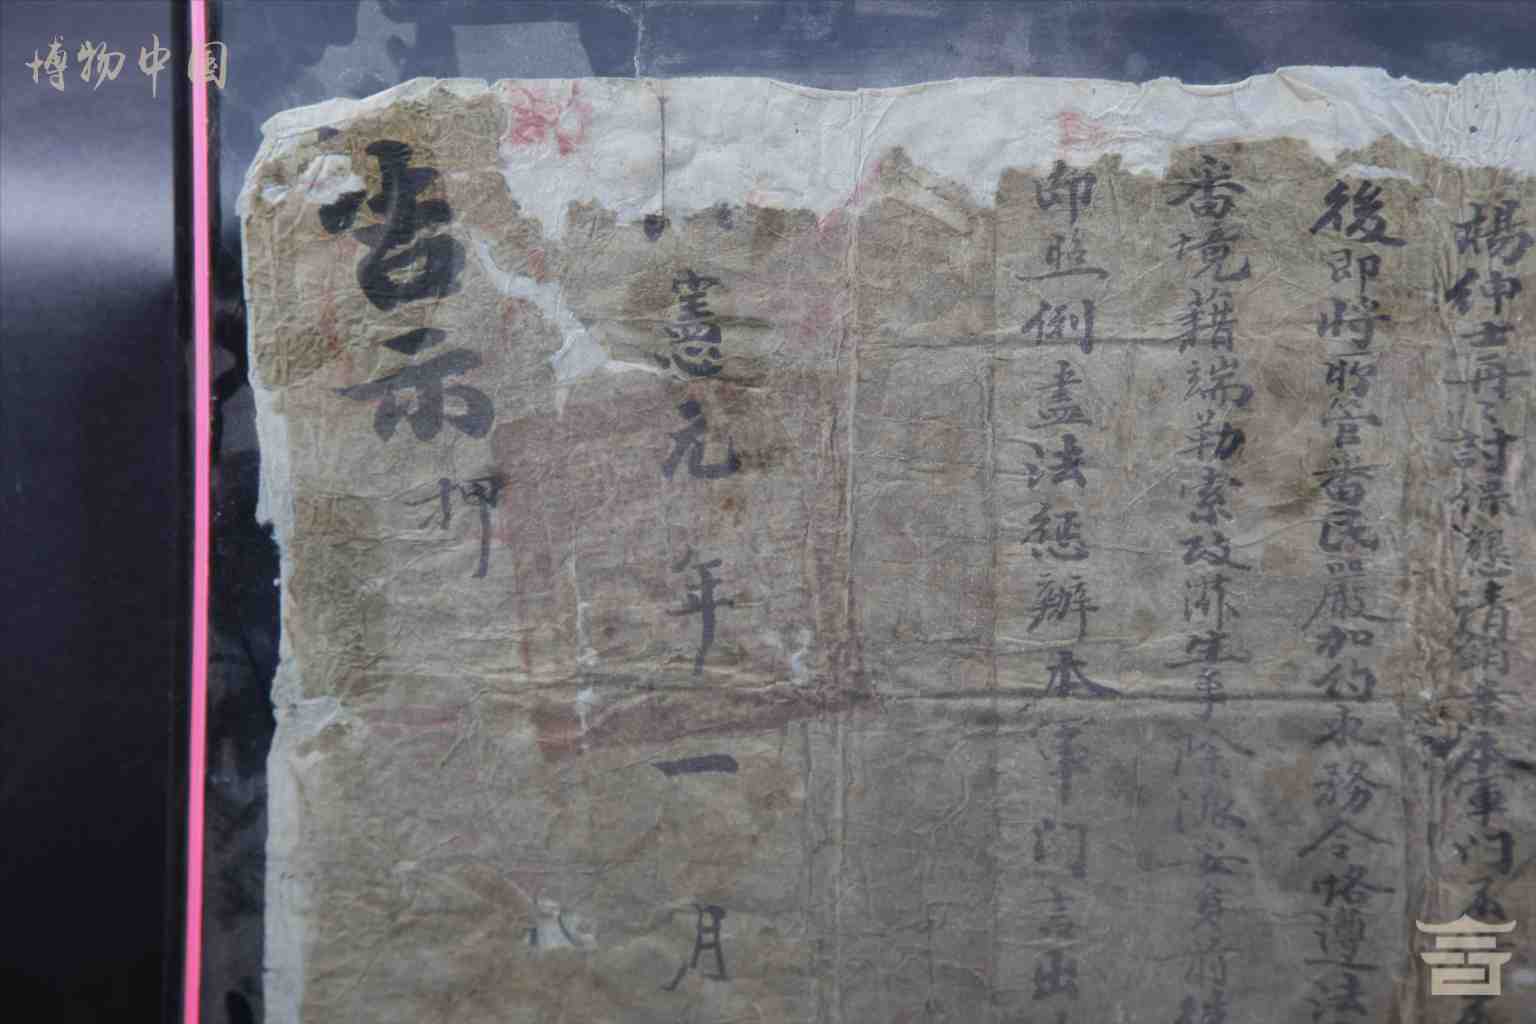 博物中国
楊紳士再々討保懇請銷案本軍门不
後即將所管番民嚴加約束務令恪遵法
番境藉端勒索致滋生事除派安身前往
即照例盡法惩辦本軍门言出
憲元年一月
告示
押